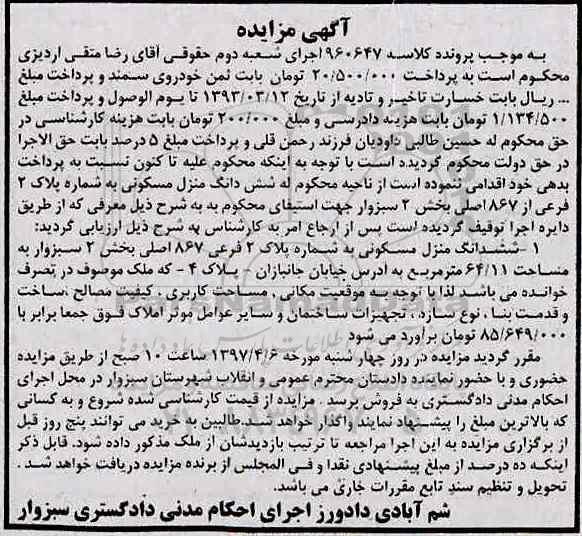 آگهی مزایده
به موجب پرونده کلاسه ۹۶۰۶۴۷ اجرای شعبه دوم حقوقی آقای رضا متقی اردیزی
محکوم است به پرداخت ۲۰/۵۰۰/۰۰۰ تومان بابت ثمن خودروی سمند و پرداخت مبلغ
... ریال بابت خسارت تاخیر و تادیه از تاریخ ۱۳۹۳/۰۳/۱۲ تا یوم الوصول و پرداخت مبلغ
۱/۱۳۴/۵۰۰ تومان بابت هزینه دادرسی و مبلغ ۲۰۰/۰۰۰ تومان بابت هزینه کارشناسی در
حق محکوم له حسین طالبی داودیان فرزند رحمن قلی و پرداخت مبلغ ۵ درصد بابت حق الاجرا
در حق دولت محکوم گردیده است با توجه به اینکه محکوم علیه تا کنون نسبت به پرداخت
بدهی خود اقدامی ننموده است از ناحیه محکوم له شش دانگ منزل مسکونی به شماره پلاک ۲
فرعی از ۸۶۷ اصلی بخش ۲ سبزوار جهت استیفای محکوم به به شرح ذیل معرفی که از طریق
دایره اجرا توقیف گردیده است پس از ارجاع امر به کارشناس به شرح ذیل ارزیابی گردید:
۱- ششدانگ منزل مسکونی به شماره پلاک ۲ فرعی ۸۶۷ اصلی بخش ۲ سبزوار به
مساحت ۶۴/۱۱ مترمربع به ادرس خیابان جانبازان - پلاک ۴ - که ملک موصوف در تصرف
خوانده می باشد لذا با توجه به موقعیت مکانی، مساحت کاربری، کیفیت مصالح، ساخت
و قدمت بنا، نوع سازه، تجهیزات ساختمان و سایر عوامل موثر املاک فوق جمعا برابر با
۸۵/۶۴۹/۰۰۰ تومان برآورد می شود
مقرر گردید مزایده در روز چهار شنبه مورخه ۱۳۹۷/۴/۶ ساعت ۱۰ صبح از طریق مزایده
حضوری و با حضور نماینده دادستان محترم عمومی و انقلاب شهرستان سبزوار در محل اجرای
احکام مدنی دادگستری به فروش برسد. مزایده از قیمت کارشناسی شده شروع و به کسانی
که بالاترین مبلغ را پیشنهاد نمایند واگذار خواهد شد.طالبین به خرید می توانند پنج روز قبل
از برگزاری مزایده به این اجرا مراجعه تا ترتیب بازدیدشان از ملک مذکور داده شود. قابل ذکر
اینکه ده درصد از مبلغ پیشنهادی نقدا و فی المجلس از برنده مزایده دریافت خواهد شد.
تحویل و تنظیم سند تابع مقررات جاری می باشد.
شم آبادی دادورز اجرای احکام مدنی دادگستری سبزوار